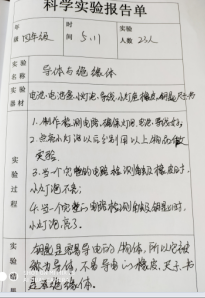 科学实验报告单
年级 四年级 时间 5.11 实验人数 23人
实验名称 导体与绝缘体
实验器材 电池、电池盒、小灯泡、导线、小灯座、橡皮、钥匙、尺子、书
实验过程
1. 制作检测电路，确保灯泡、电池、导线完好
2. 点亮小灯泡以后分别用以上物品做
实验。
3. 当一个完整的电路检测到橡皮时，
小灯泡不亮；
4. 当一个完整的电路检测到钥匙时，
小灯泡亮了。
实验结
钥匙是容易导电的物体，所以它被
称为导体，不易导电的橡皮、尺子、书
是绝缘体。